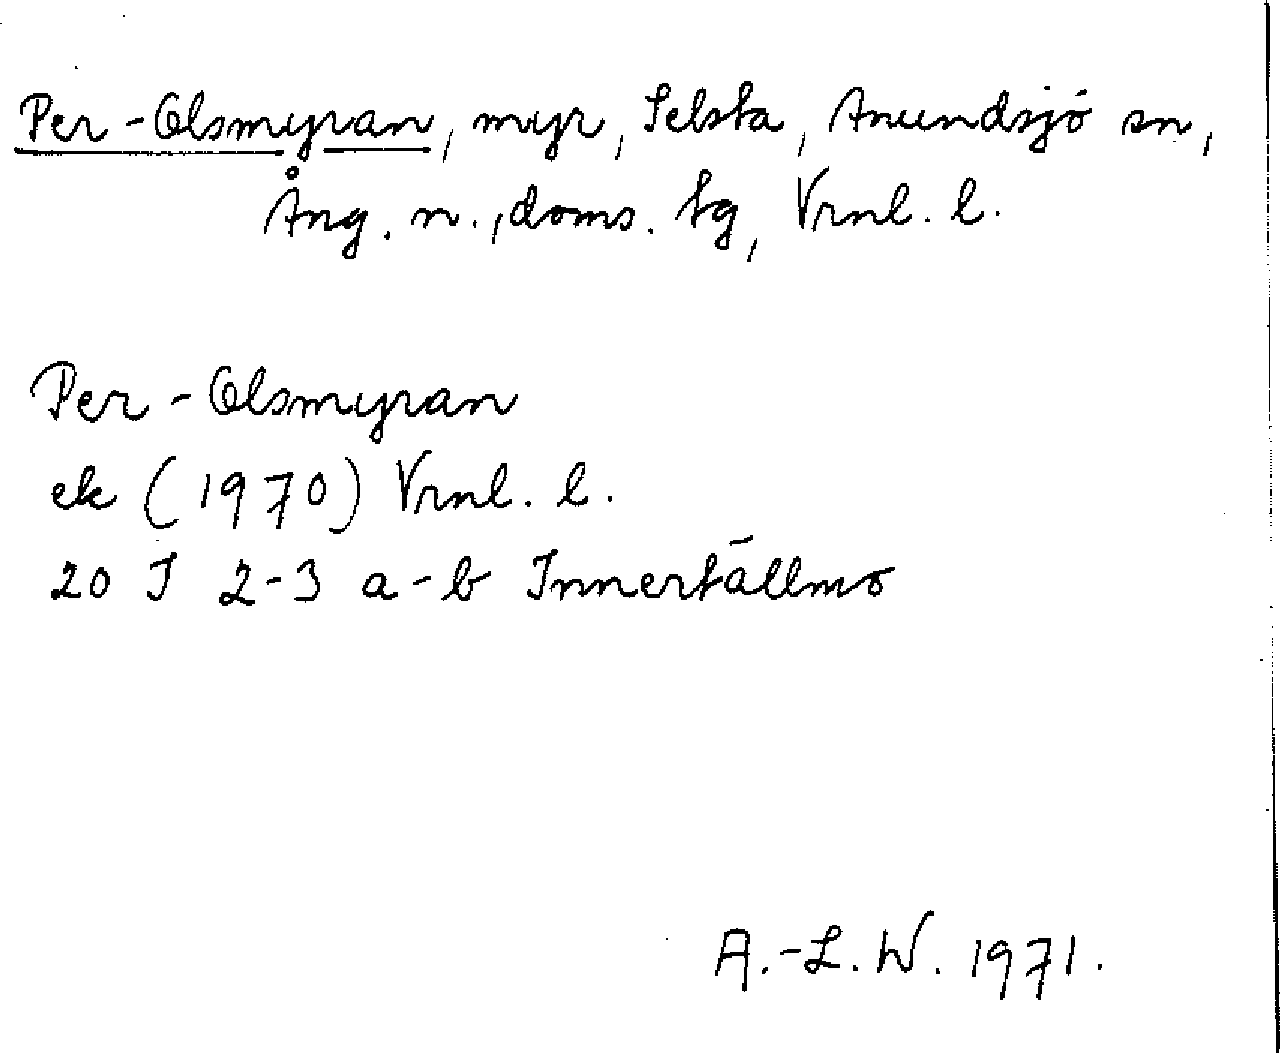 Per-Olsmyran, myr, Selsta, Anundsjö sn,
Ång. n., doms. tg, Vrnl. l.
Per-Olsmyran
ek (1970) Vrnl. l.
20 I 2-3 a-b Innertällmo
A.-L. W. 1971.